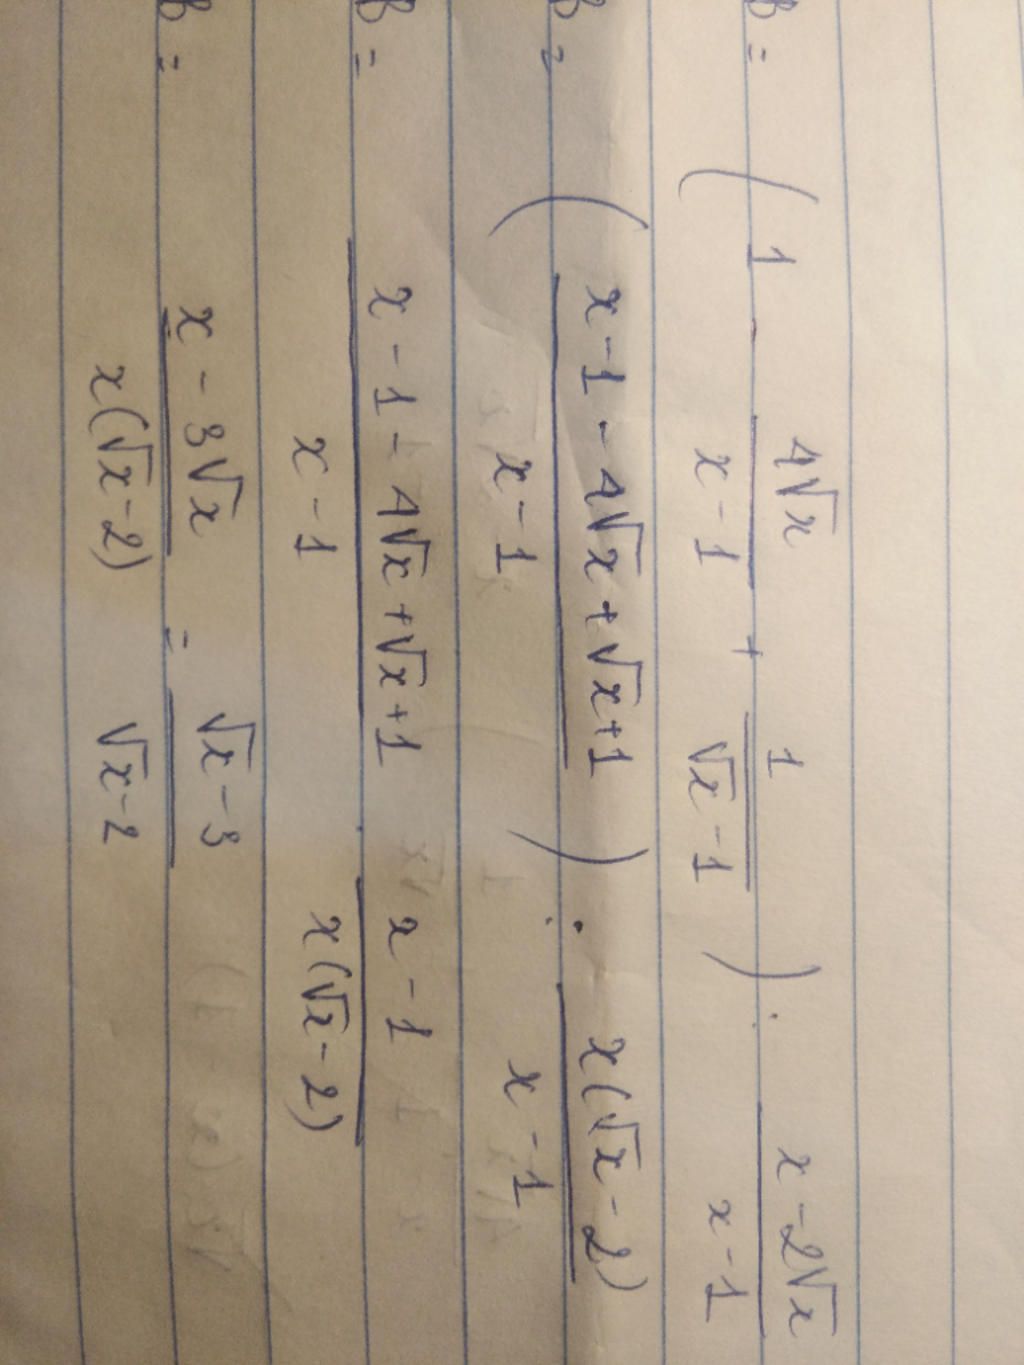 B = ( 1 - 4√x / x - 1 + 1 / √x - 1 ) : x - 2√x / x - 1
B = ( x - 1 - 4√x + √x + 1 / x - 1 ) : x(√x - 2) / x - 1
B = x - 1 - 4√x + √x + 1 / x - 1 . x - 1 / x(√x - 2)
B = x - 3√x / x(√x - 2) = √x - 3 / √x - 2